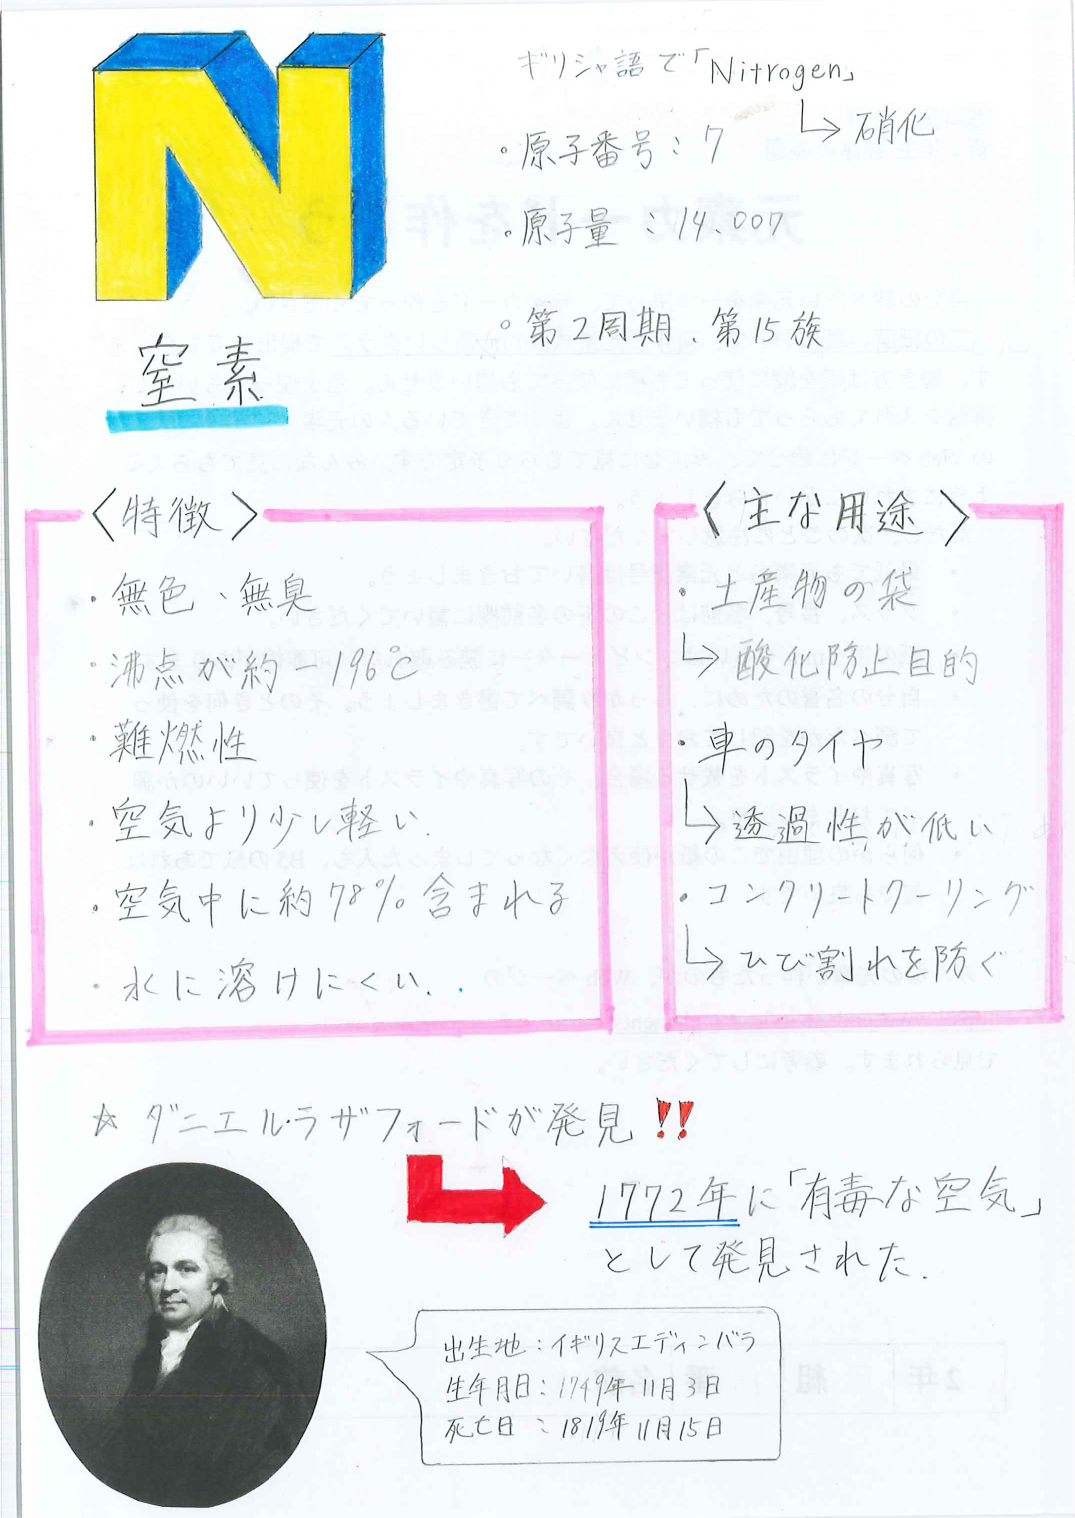 N
窒素
ギリシャ語で「Nitrogen」
↳硝化
・原子番号：7
・原子量：14.007
・第2周期、第15族
〈特徴〉
・無色、無臭
・沸点が約-196℃
・難燃性
・空気より少し軽い.
・空気中に約78%含まれる
・水に溶けにくい.
〈主な用途〉
・土産物の袋
↳酸化防止目的
・車のタイヤ
↳透過性が低い
・コンクリートクーリング
↳ひび割れを防ぐ
☆ダニエル・ラザフォードが発見!!
1772年に「有毒な空気」
として発見された.
出生地：イギリスエディンバラ
生年月日：1749年11月3日
死亡日：1819年11月15日